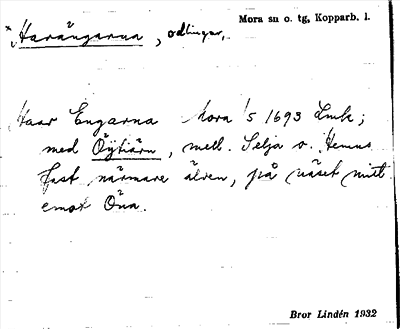 Mora sn o. tg, Kopparb. l.
*Harängarna, odlingar,
Haar Engarna Mora 1/5 1693 Lmk;
med Öÿtiärn, mell. Selja o. Hemus
fast närmare älven, på näset mitt
emot Öna.
Bror Lindén 1932